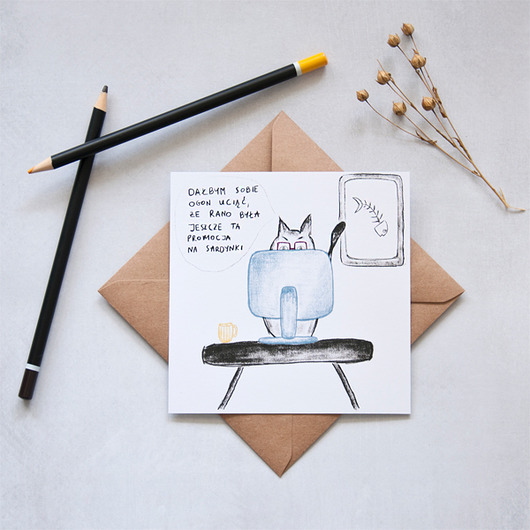 DAŁBYM SOBIE
OGON UCIĄĆ,
ŻE RANO BYŁA
JESZCZE TA
PROMOCJA
NA SARDYNKI